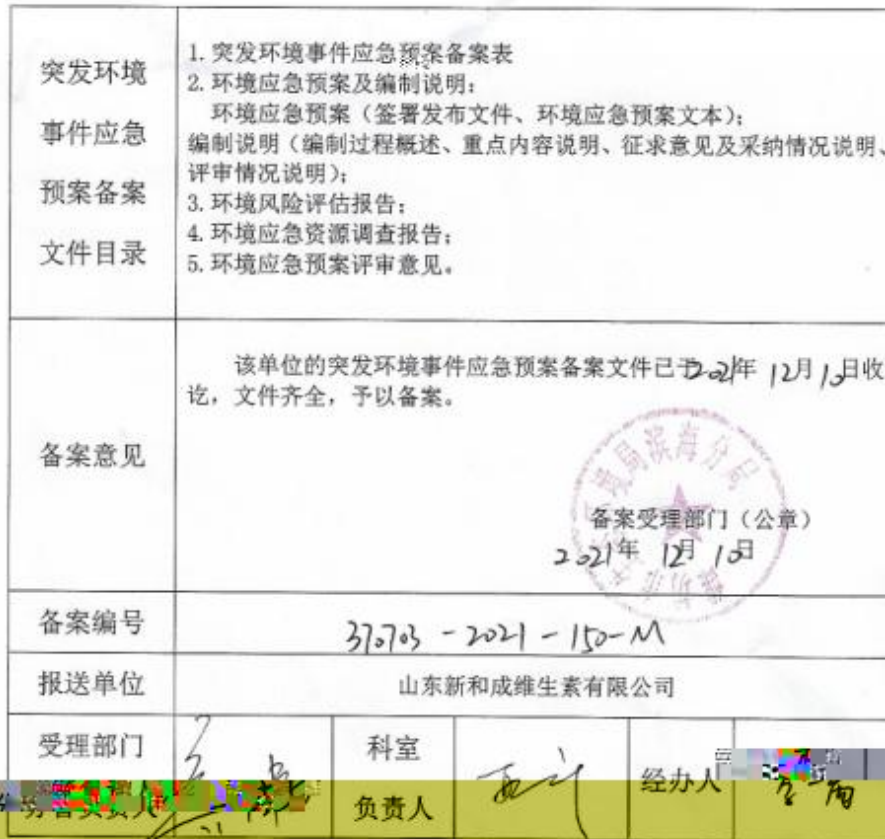 突发环境
事件应急
预案备案
文件目录
1. 突发环境事件应急预案备案表
2. 环境应急预案及编制说明：
环境应急预案（签署发布文件、环境应急预案文本）；
编制说明（编制过程概述、重点内容说明、征求意见及采纳情况说明、
评审情况说明）；
3. 环境风险评估报告；
4. 环境应急资源调查报告；
5. 环境应急预案评审意见。
备案意见
该单位的突发环境事件应急预案备案文件已于2021年 12月10日收
讫，文件齐全，予以备案。
境局滨海分局
备案受理部门（公章）
2021年 12月 10日
备案编号
370703-2021-150-M
报送单位
山东新和成维生素有限公司
受理部门
负责人
科室
负责人
经办人